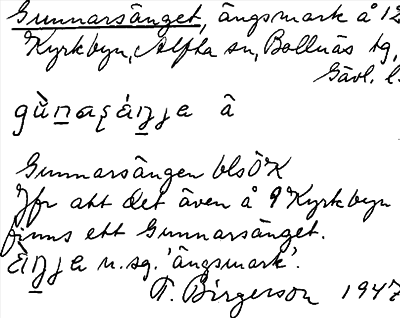 Gunnarsänget, ängsmark å 12
Kyrkbyn, Alfta sn, Bollnäs tg,
Gävl. l.
â
Gunnarsängen bls ÖK
Jfr att det även å 9 Kyrkbyn
finns ett Gunnarsänget.
n. sg. 'ängsmark'.
F. Birgerson 1947